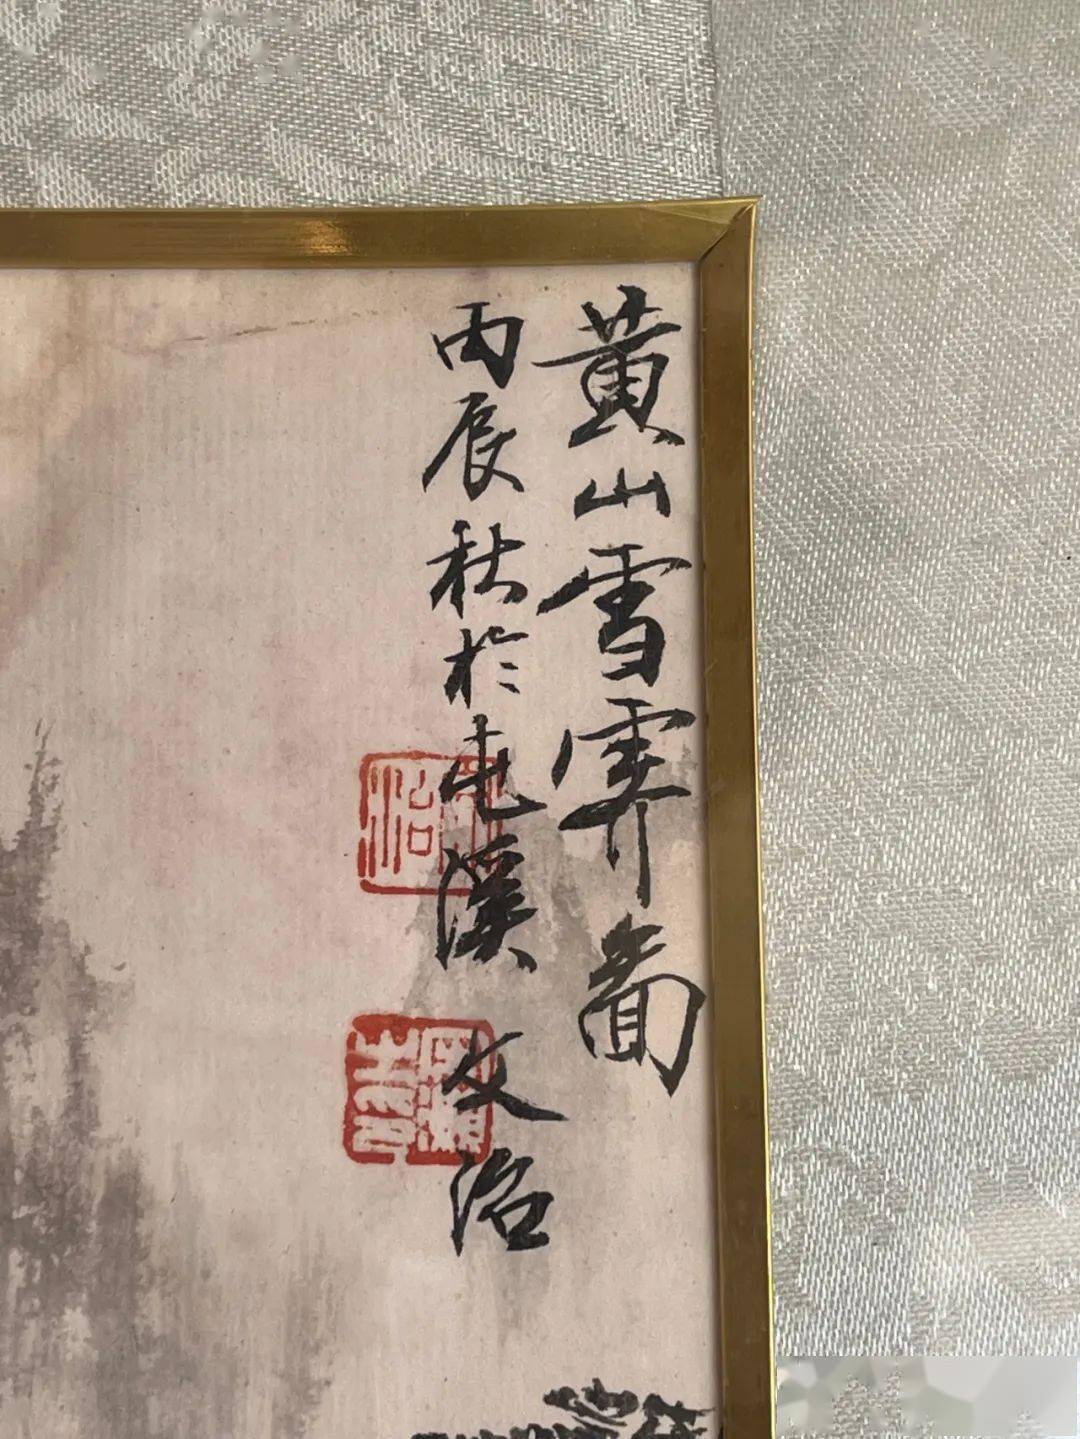 黄山雪霽圖
丙辰秋於屯溪 文治